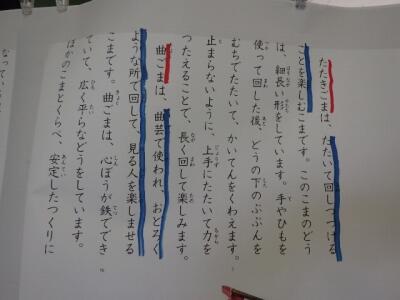 たたきごまは、たたいて回しつづける
ことを楽しむこまです。このこまのどう
は、細長い形をしています。手やひもを
使って回した後、どうの下のぶぶんを
むちでたたいて、かいてんをくわえます。
止まらないように、上手にたたいて力を
つたえることで、長く回して楽しみます。
曲ごまは、曲芸で使われ、おどろく
ような所で回して、見る人を楽しませる
こまです。曲ごまは、心ぼうが鉄ででき
ていて、広く平らなどうをしています。
ほかのこまとくらべ、安定したつくりに
なって